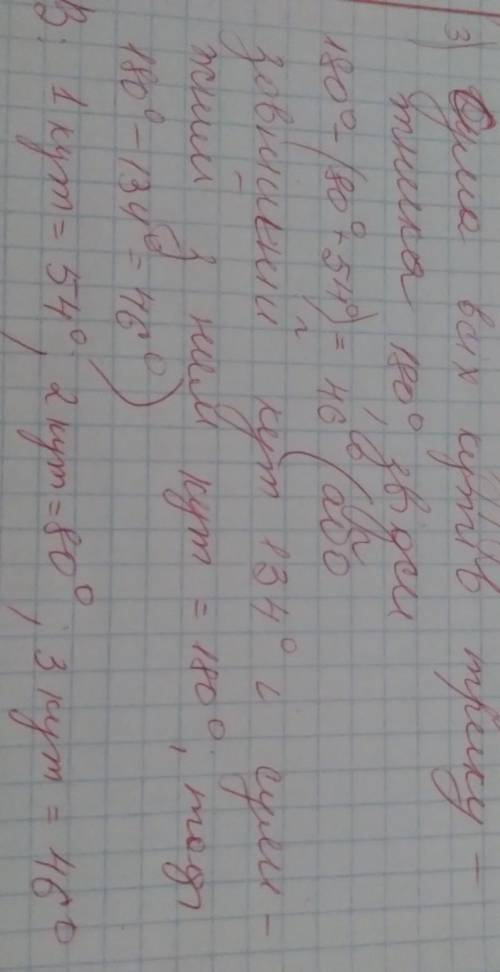 3) Сума всіх кутів трику-
тника 180°, звідси
180° - (80° + 54°) = 46° (або
зовнішній кут 134° і сумі-
жний з ним кут = 180°, тоді
180° - 134° = 46°)
В: 1 кут = 54°; 2 кут = 80°; 3 кут = 46°